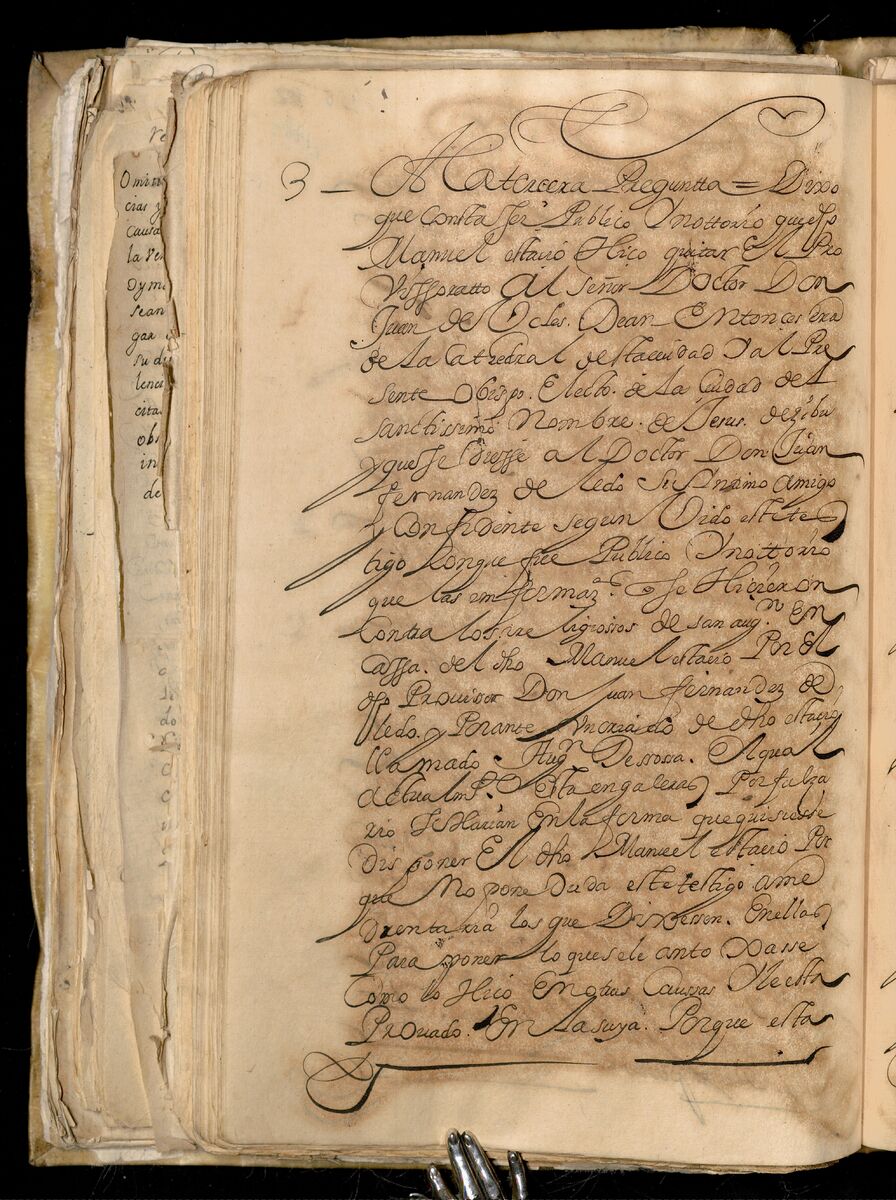 re
Omiti
cias y
Causa
la ver
oyme
sean
gar
su di
lenci
cita
obs
in
de
3 — A La tercera Pregunta = Dixo
que consta ser Publico Ynottorio quedho
Manuel estacio Hiço quitar El Pro
Vissoratto al señor Doctor Don
Juan de Ucles. Dean Entonces era
de la Cathedral destaciudad Yal Pre
sente Obispo. Electo. de la Ciudad del
sanctissimo Nombre. de Jesus. de zibu
yquesse diesse al Doctor Don Juan
fernandez de ledo Su Yntimo amigo
Y Confidente segun Oido estetes
tigo Conque fue Publico Ynottorio
que las informaz.s se Hicieron
Contra los religiosos de san aug.n En
Cassa. del dho Manuel estacio Por El
dho Provisor Don Juan fernandez de
ledo. y Porante Vn criado de dho estacio
llamado Aug.n Derossa. El qual
Actualm.te Esta engaleras Por falza
rio Se Harian Enla forma que quisiesse
Disponer El dho Manuel estacio Por
que No pone Duda estetestigo ame
drentaria los que Dixessen. Enellas
Para poner lo quesele antoxasse
Como lo Hiço En otras Caussas Yesta
Provado. En la suya. Porque esta